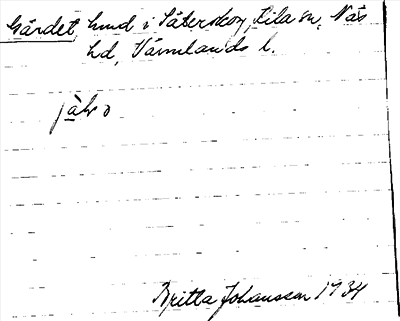 Gärdet, hmd i Säterskog, Kila sn, Näs
hd, Värmlands l.
jàḷo
Britta Johansson 1934